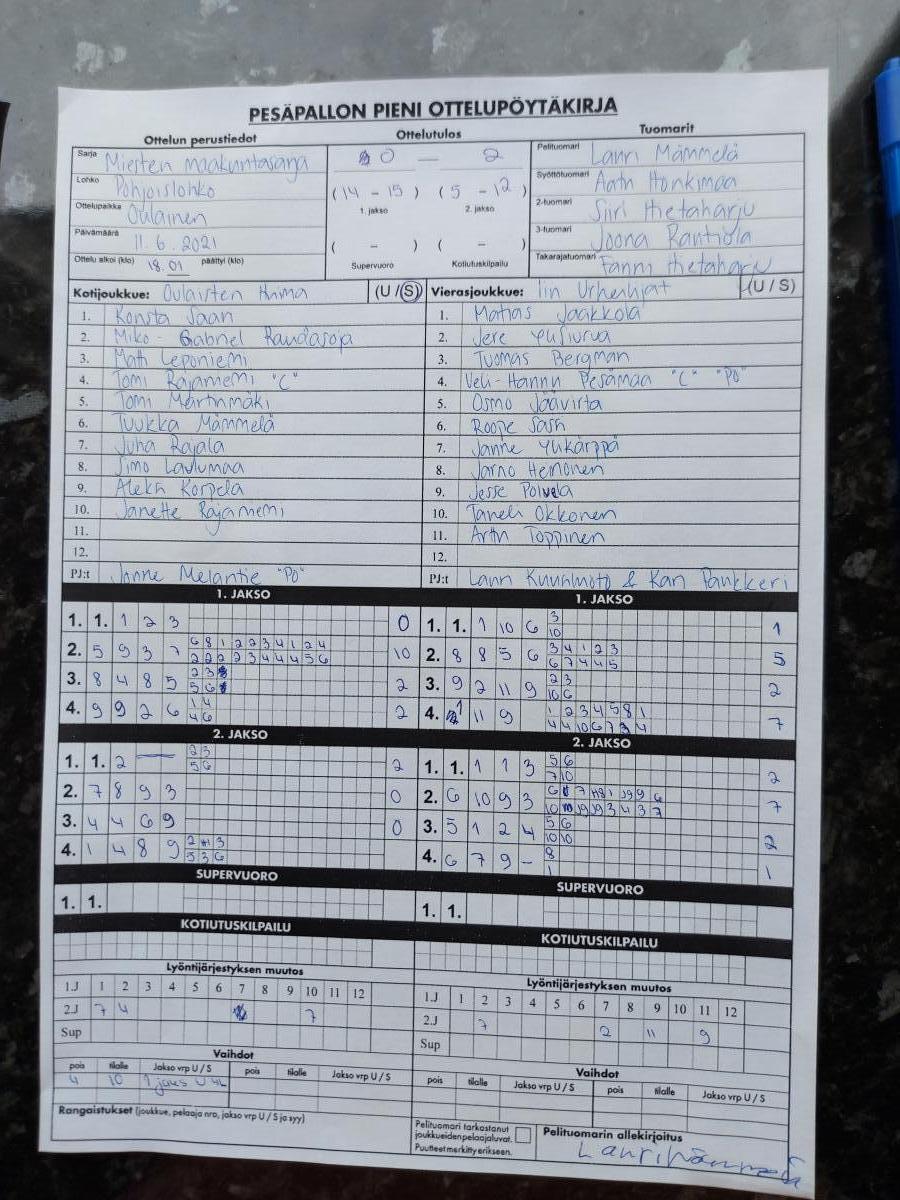 PESÄPALLON PIENI OTTELUPÖYTÄKIRJA
Ottelun perustiedot Ottelutulos Tuomarit
Sarja Miesten maakuntasarja 0 — 2 Pelituomari Lauri Mämmelä
Lohko Pohjoislohko (14 - 15) (5 - 12) Syöttötuomari Aatu Honkimaa
Ottelupaikka Oulainen 1. jakso 2. jakso 2-tuomari Siiri Hietaharju
Päivämäärä 11.6.2021 ( - ) ( - ) 3-tuomari Joona Rantiola
Ottelu alkoi (klo) 18.01 päättyi (klo) Supervuoro Kotiutuskilpailu Takarajatuomari Fanni Hietaharju
Kotijoukkue: Oulaisten Huima (U/S) Vierasjoukkue: Iin Urheilijat (U/S)
1. Konsta Saari 1. Matias Jaakkola
2. Miko-Gabriel Raudasoja 2. Jere
3. Matti Leponiemi 3. Tuomas Bergman
4. Tomi Rajaniemi "C" 4. Veli-Hannu Pesämaa "C" "PO"
5. Tomi Martinmäki 5. Osmo Jäävirta
6. Tuukka Mämmelä 6. Roope Sash
7. Juha Rajala 7. Janne Ylikärppä
8. Simo Laulumaa 8. Jarno Hemonen
9. Aleksi Korpela 9. Jesse Polvela
10. Janette Rajaniemi 10. Taneli Okkonen
11. 11. Arttu Toppinen
12. 12.
PJ:t Janne Melantie "PO" PJ:t Lauri Kuunmoto & Kari Pankkeri
1. JAKSO 1. JAKSO
1. 1. 1 2 3 0 1. 1. 1 10 6 3 1
10
2. 5 9 3 7 6 8 1 2 2 3 4 1 2 4 10 2. 8 8 5 6 3 4 1 2 3 5
2 2 2 2 3 4 4 4 5 6 6 7 4 4 5
3. 8 4 8 5 2 3 2 3. 9 2 11 9 2 3 2
5 6 10 6
4. 9 9 2 6 1 4 2 4. 1 11 9 1 2 3 4 5 8 1 7
4 6 4 4 10 6 7 3 4
2. JAKSO 2. JAKSO
1. 1. 2 — 2 3 2 1. 1. 1 1 3 5 6 2
5 6 7 10
2. 7 8 9 3 0 2. 6 10 9 3 7
3. 4 4 6 9 0 3. 5 1 2 4 5 6 2
10 10
4. 1 4 8 9 4. 6 7 9 - 8 1
5 3 6 1
SUPERVUORO SUPERVUORO
1. 1. 1. 1.
KOTIUTUSKILPAILU KOTIUTUSKILPAILU
Lyöntijärjestyksen muutos Lyöntijärjestyksen muutos
1.J 1 2 3 4 5 6 7 8 9 10 11 12 1.J 1 2 3 4 5 6 7 8 9 10 11 12
2.J 7 4 7 2.J 7 2 11 9
Sup Sup
Vaihdot Vaihdot
pois tilalle Jakso vrp U / S pois tilalle Jakso vrp U / S pois tilalle Jakso vrp U / S pois tilalle Jakso vrp U / S
4 10 1 jakso U
Rangaistukset (joukkue, pelaaja nro, jakso vrp U / S ja syy)
Pelituomari tarkastanut joukkueiden pelaajaluvat.
Puutteet merkitty erikseen.
Pelituomarin allekirjoitus
Lauri Mämmelä